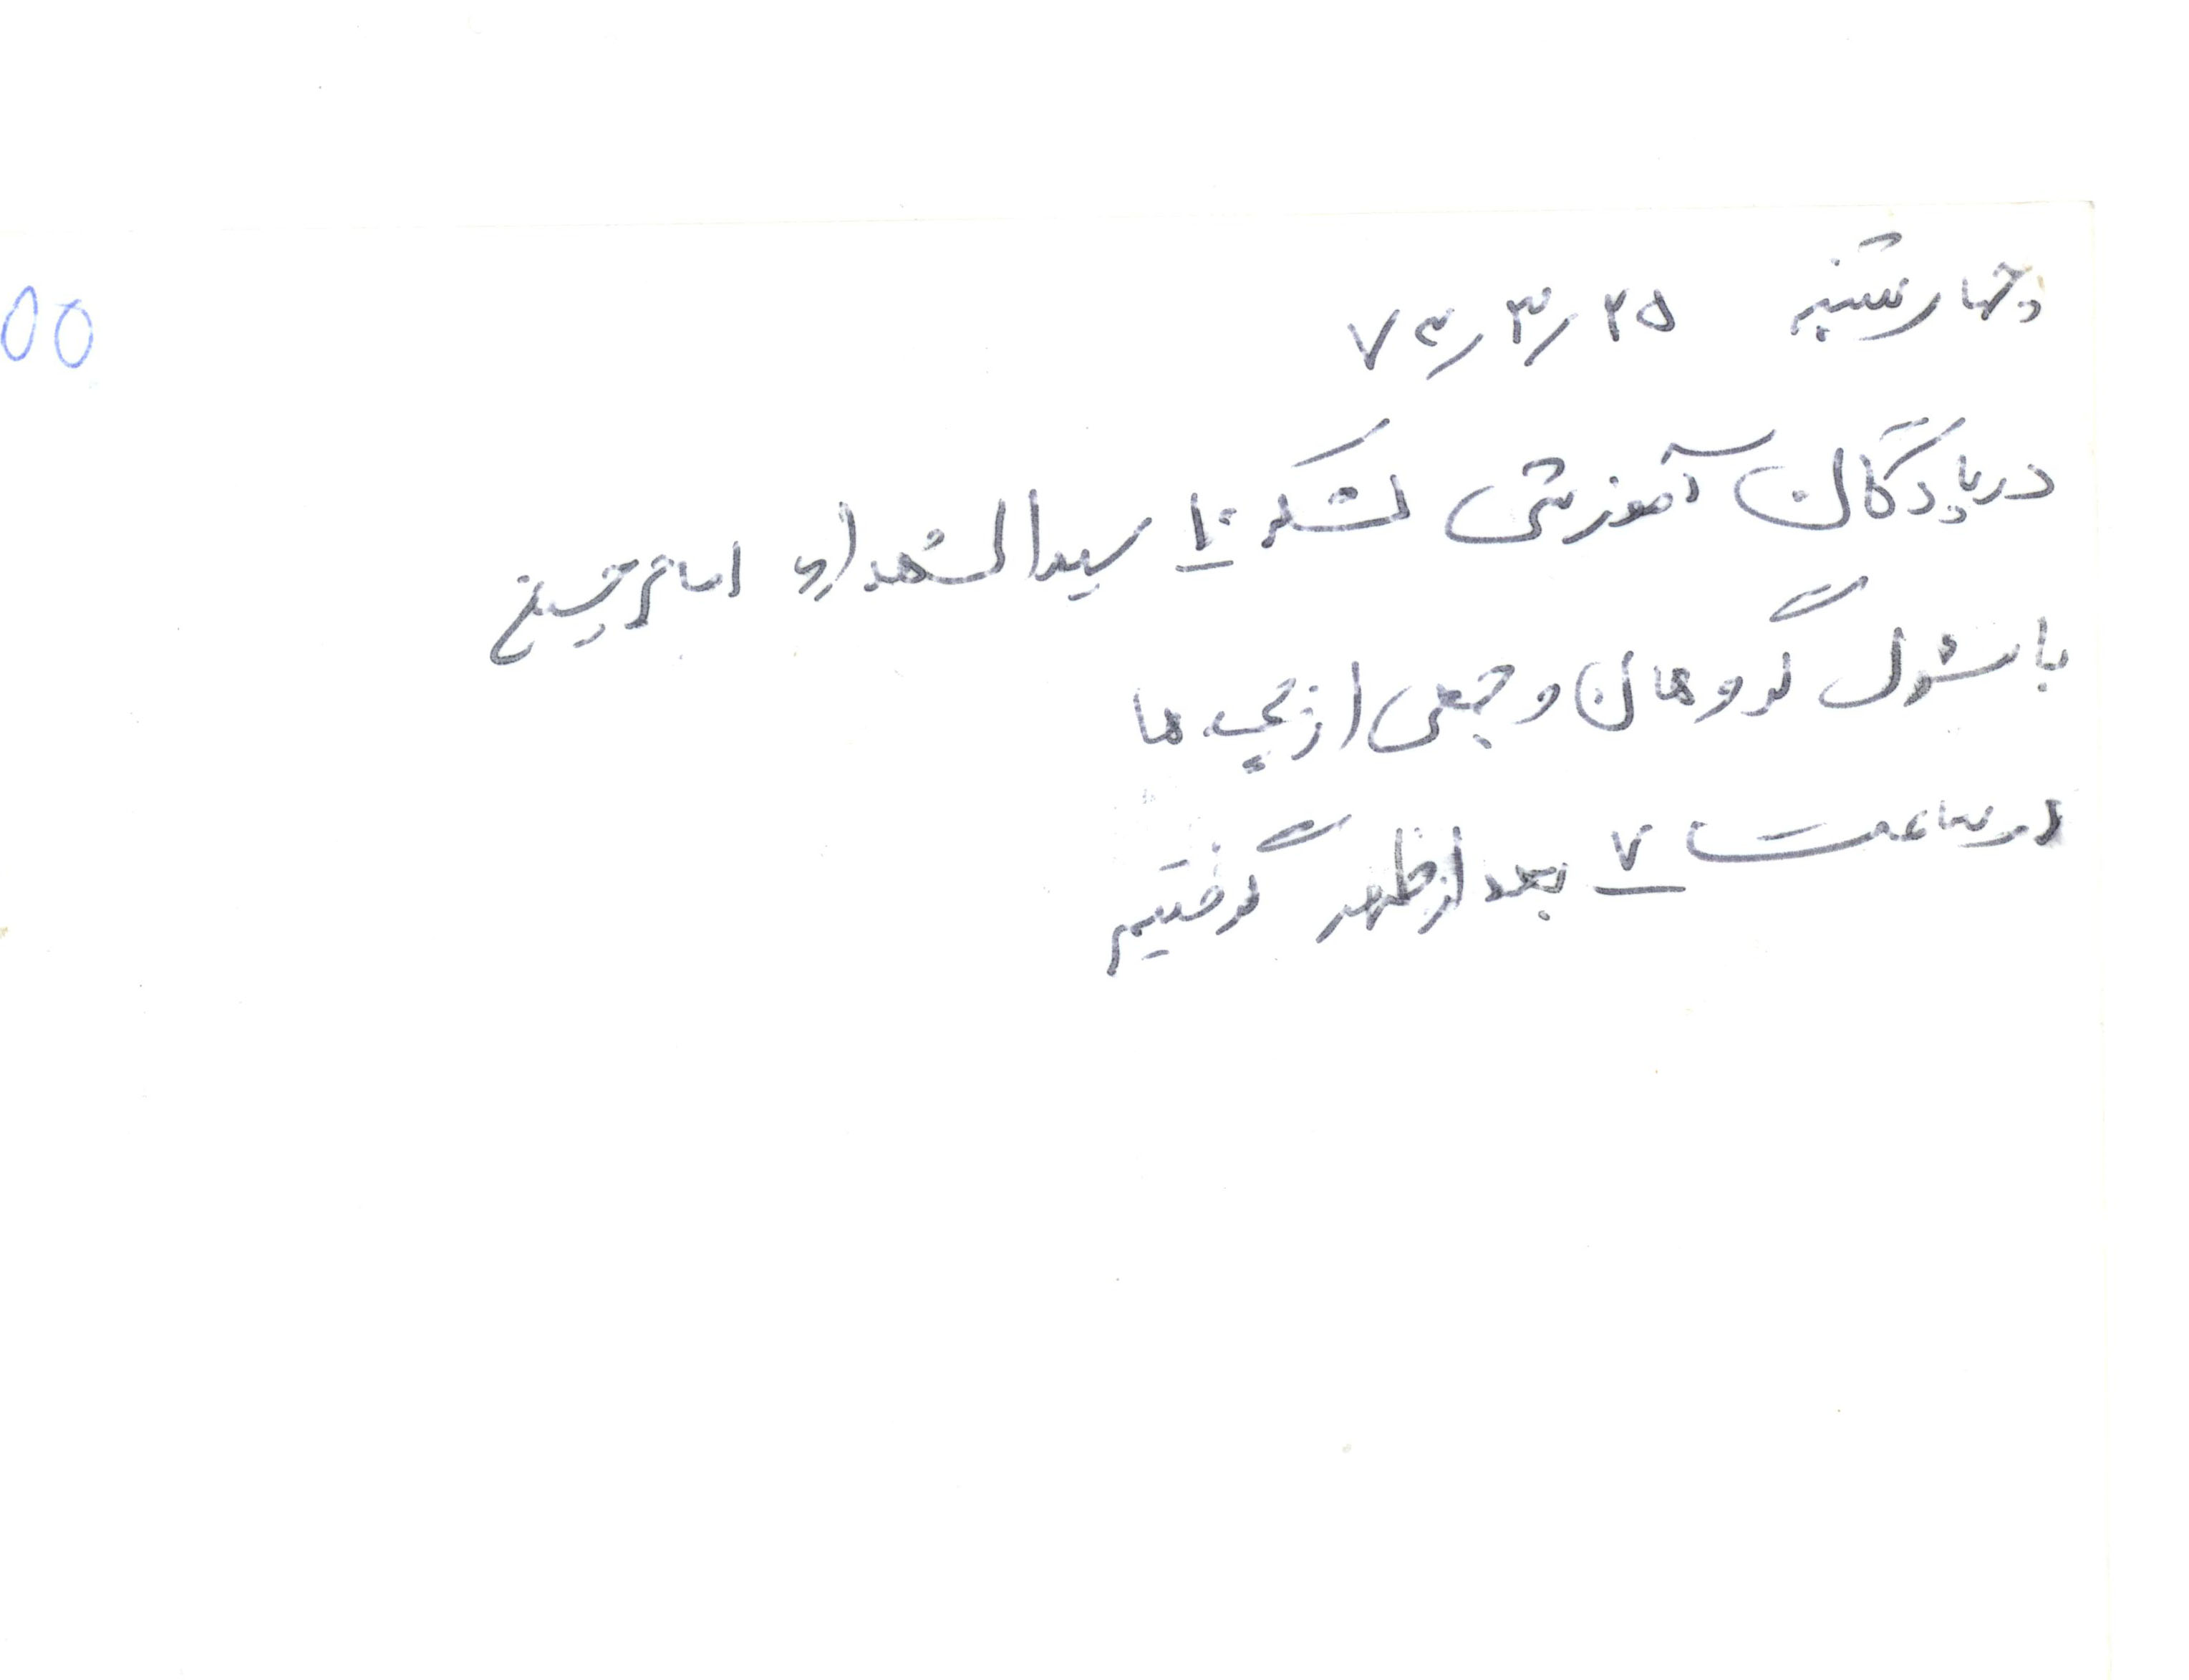 چهارشنبه ۷۳/۳/۲۵
در پادگان آموزشی لشکر ۱۰ سیدالشهداء امام حسین
با مسئول گروهان و جمعی از بچه ها
در ساعت ۷ بعد از ظهر گرفتیم
00